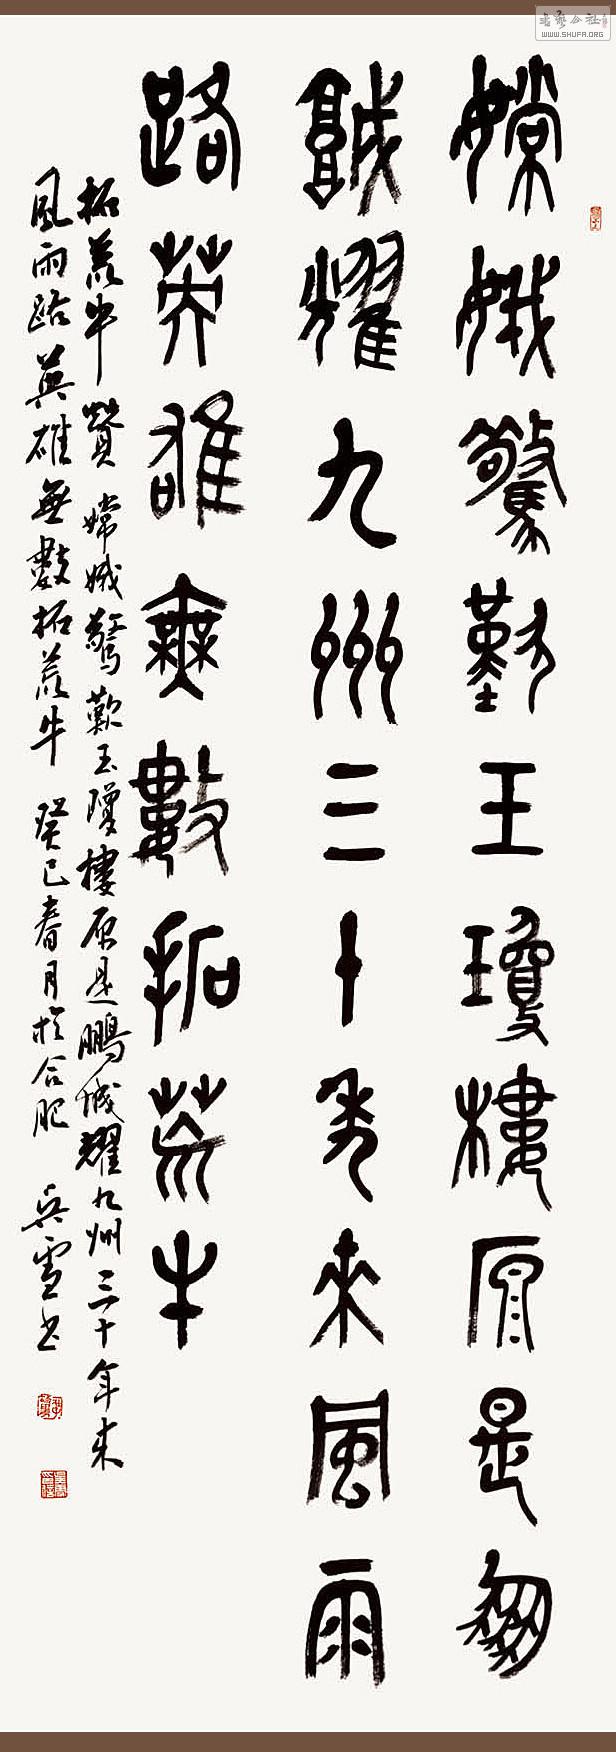 嫦娥驚歎玉瓊樓原是鵬
城耀九州三十年來風雨
路英雄無數拓荒牛
拓荒牛贊 嫦娥驚歎玉瓊樓原是鵬城耀九州三十年來
風雨路英雄無數拓荒牛 癸巳春月於合肥 吳雪書
書藝公社
WWW.SHUFA.ORG